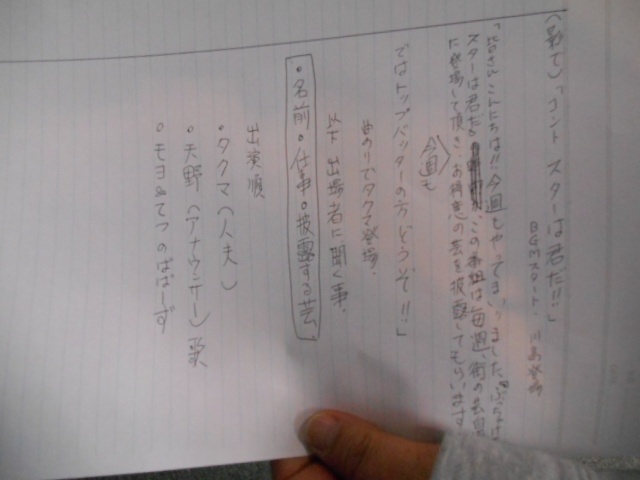 (影で)「コント スターは君だ!!」
BGMスタート、川島登場
「皆さんこんにちは!!今週もやってまいりました。
スターは君だ。この番組は毎週、街の芸自
に登場して頂き、お得意の芸を披露してもらいます
今週も
ではトップバッターの方どうぞ!!」
曲のりでタクマ登場。
以下 出場者に聞く事、
・名前・仕事・披露する芸、
出演順
・タクマ(人夫)
・天野(アナウンサー)
・モヨ&てつのぱぱーず